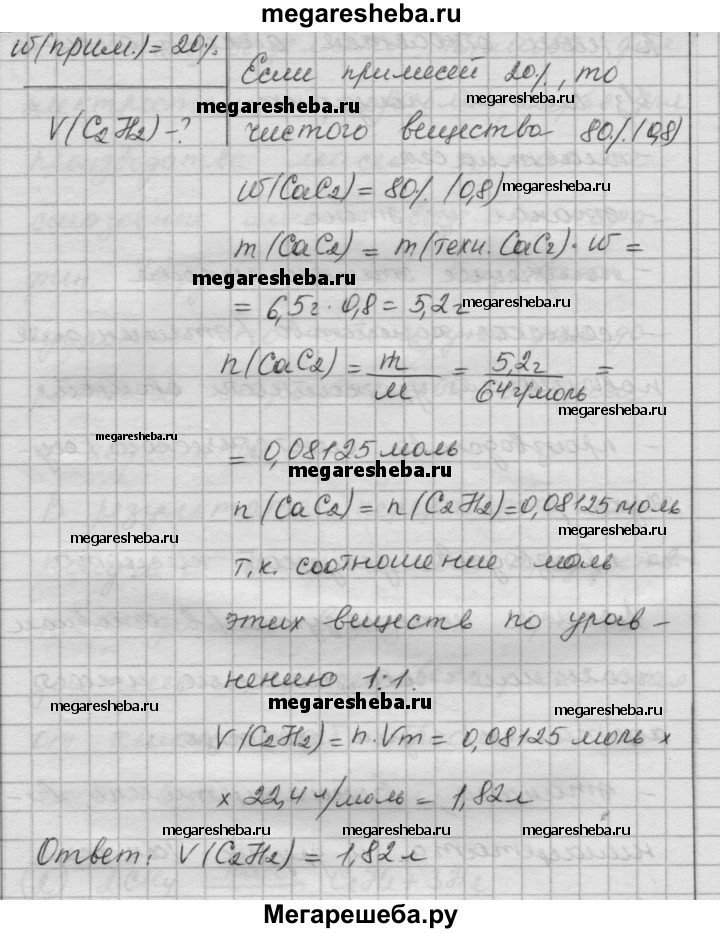 megaresheba.ru
w(прим.)=20%
Если примесей 20%, то
megaresheba.ru
megaresheba.ru
V(C2H2)-?
чистого вещества 80%(0,8)
w(CaC2)=80% (0,8)
megaresheba.ru
m(CaC2)=m(техн. CaC2)·w=
megaresheba.ru
=6,5г·0,8=5,2г
megaresheba.ru
n(CaC2)=m/M=5,2г/64г/моль=
megaresheba.ru
megaresheba.ru
=0,08125 моль
megaresheba.ru
n(CaC2)=n(C2H2)=0,08125 моль
megaresheba.ru
megaresheba.ru
т.к. соотношение моль
этих веществ по урав-
нению 1:1.
megaresheba.ru
megaresheba.ru
megaresheba.ru
V(C2H2)=n·Vm=0,08125 моль x
x 22,4 л/моль=1,82л
megaresheba.ru
megaresheba.ru
megaresheba.ru
Ответ: V(C2H2)=1,82л
Мегарешеба.ру